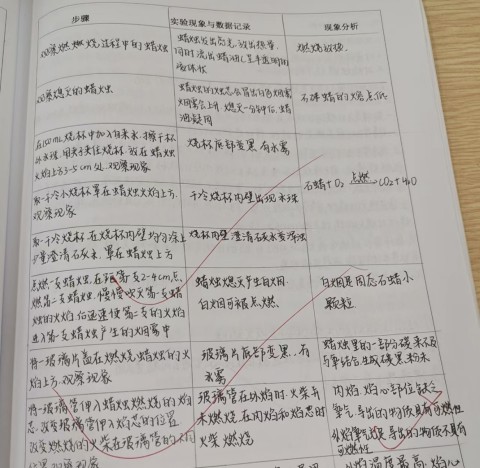 步骤 实验现象与数据记录 现象分析
观察燃烧过程中的蜡烛
蜡烛发出亮光,放出热量,
同时流出蜡油(呈半透明的
液体状
燃烧放热。
观察熄灭的蜡烛
蜡烛的火焰芯会冒出白色烟雾
烟雾会上升,熄灭一分钟后,蜡
油凝固
石蜡的熔点低
在150mL烧杯中加入自来水,擦干杯
外水珠,用夹子夹住烧杯,放在蜡烛
火焰上方3-5cm处,观察现象
烧杯底部变黑,有水雾
取一干冷小烧杯罩在蜡烛火焰上方,
观察现象
干冷烧杯内壁出现水珠
石蜡+O₂ 点燃→ CO₂+H₂O
取一干冷烧杯,在烧杯内壁均匀涂上
少量澄清石灰水,罩在蜡烛上方
烧杯内壁澄清石灰水变浑浊
点燃一支蜡烛,在距第一支2-4cm点
燃第二支蜡烛,慢慢吹灭第一支蜡
烛的火焰后迅速使第二支的火焰
进入第一支蜡烛产生的烟雾中
蜡烛熄灭产生白烟.
白烟可被点燃
白烟是固态石蜡小
颗粒
将一玻璃片盖在燃烧蜡烛的火
焰上方,观察现象
玻璃片底部变黑,有
水雾
蜡烛里的一部分碳来不及
与氧结合,生成碳黑粉末
将一玻璃管伸入蜡烛燃烧的焰
芯,改变玻璃管伸入焰芯的位置
改变燃烧的火柴在玻璃管的不同
位置,观察现象
玻璃管在外焰时,火柴并
未燃烧,在内焰和焰芯时
火柴燃烧
内焰,焰心部位缺乏
氧气,导出的物质具有可燃性
外焰氧气足,导出的物质不具有
可燃性
外焰温度最高,焰心